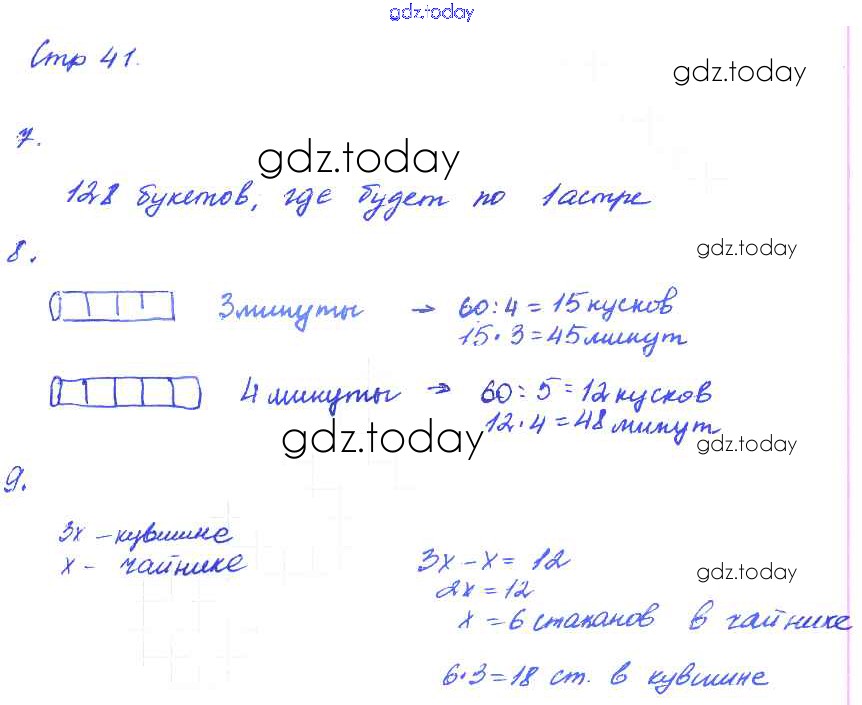 gdz.today
Стр 41.
gdz.today
7.
gdz.today
128 букетов, где будет по 1 астре
8.
gdz.today
3 минуты → 60:4 = 15 кусков
15·3 = 45 минут
4 минуты → 60:5 = 12 кусков
12·4 = 48 минут
gdz.today
gdz.today
9.
3х – кувшине
х – чайнике
3х – х = 12
gdz.today
2х = 12
х = 6 стаканов в чайнике
6·3 = 18 ст. в кувшине